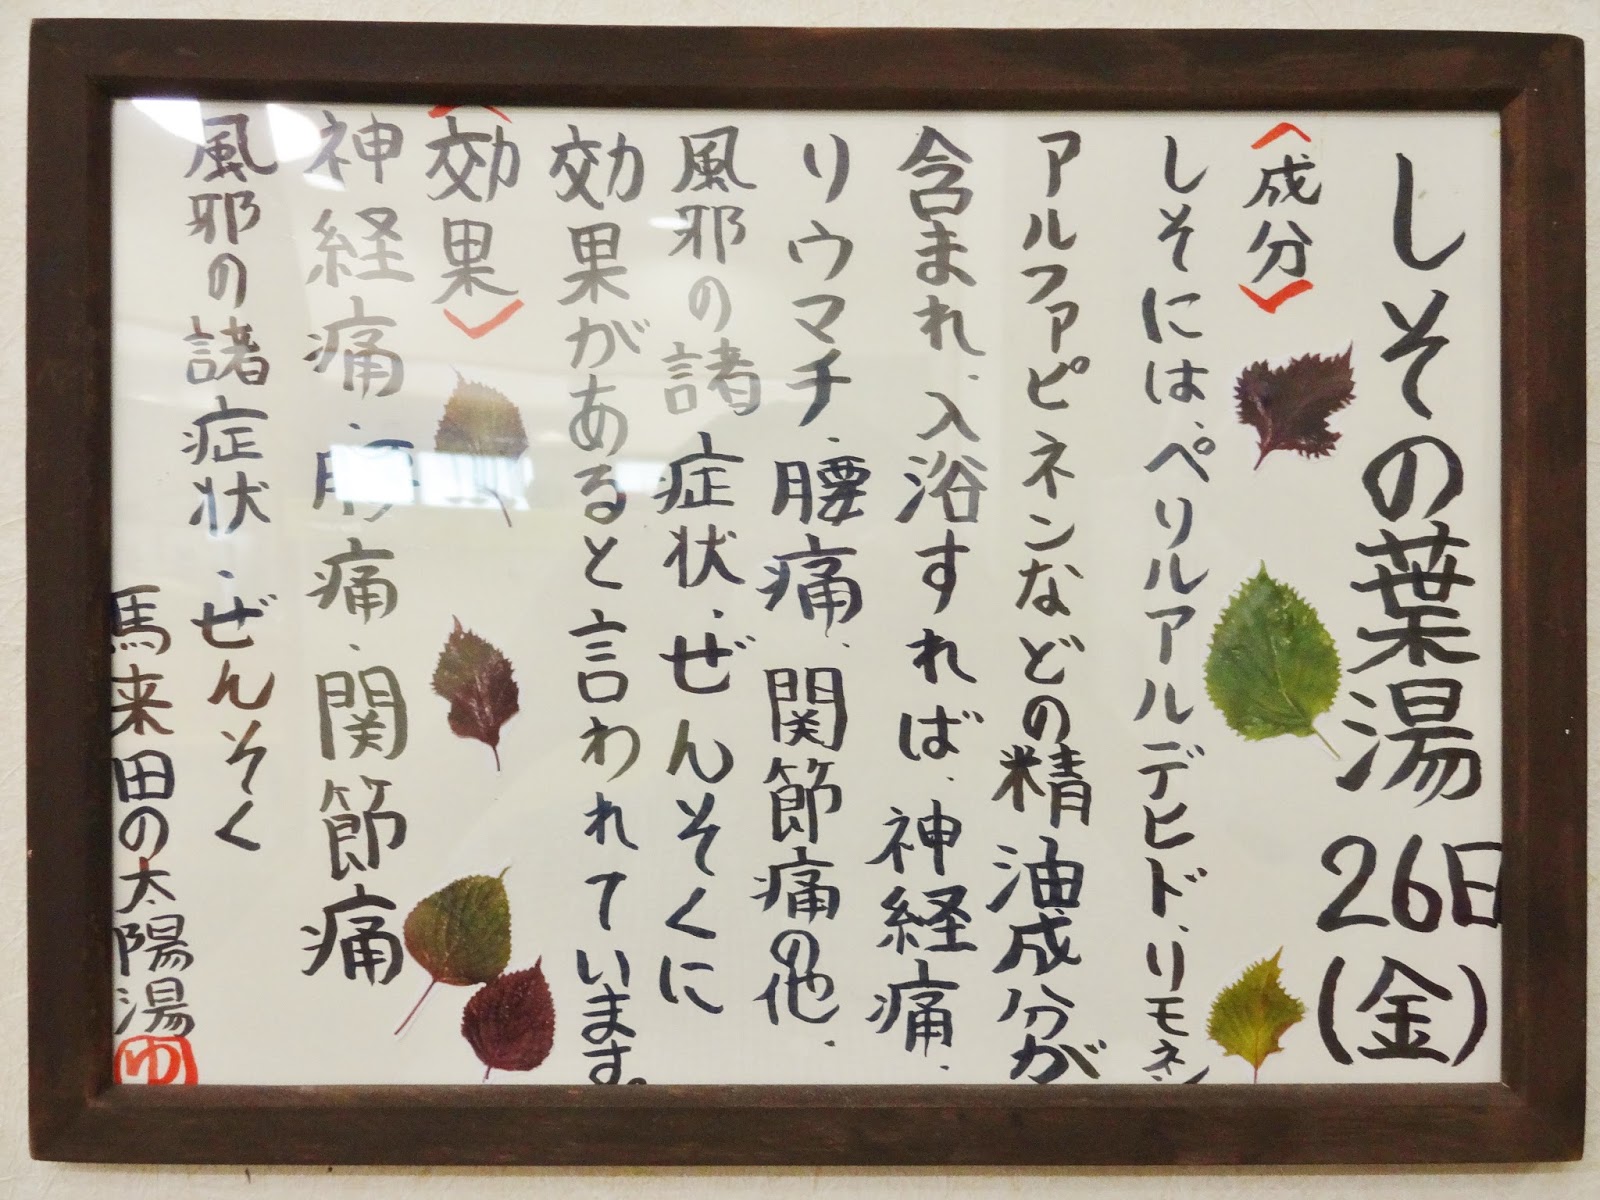 しその葉湯 26日(金)
〈成分〉
しそには、ペリルアルデヒド、リモネン
アルファピネンなどの精油成分が
含まれ、入浴すれば、神経痛・
リウマチ・腰痛・関節痛の他、
風邪の諸症状・ぜんそくに
効果があると言われています。
〈効果〉
神経痛・腰痛・関節痛
風邪の諸症状・ぜんそく
馬来田の太陽湯
ゆ